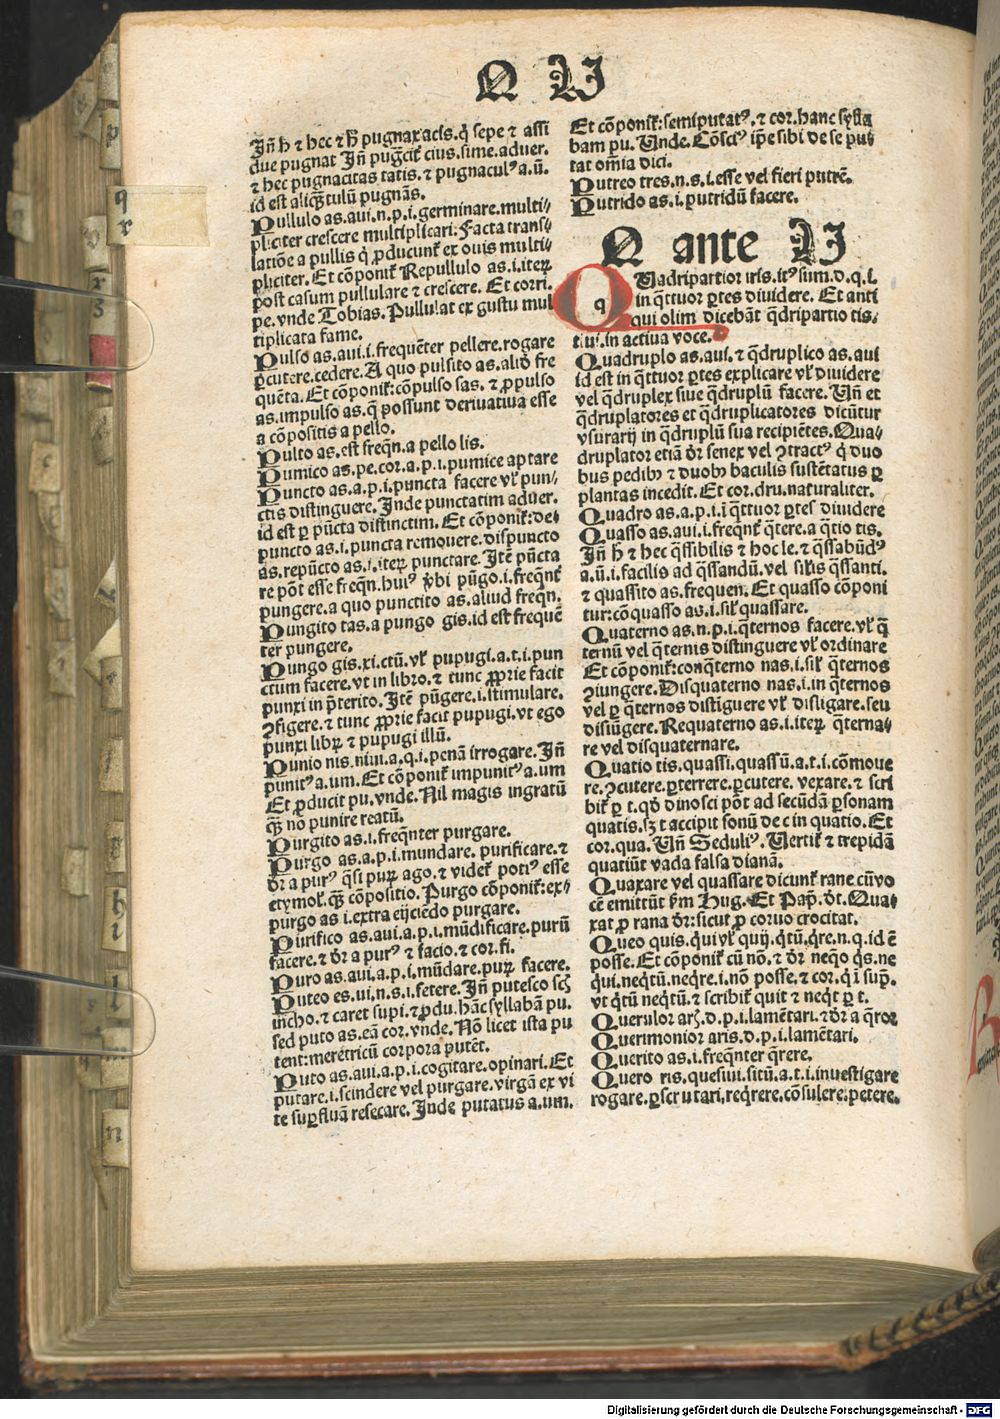 Q U
Jñ h̄ ⁊ hec ⁊ h̄ pugnax acis. q̇ sepe ⁊ assi
due pugnat Jñ pugꝰcit̃ eius. sime. aduer.
⁊ hec pugnacitas tatis. ⁊ pugnaculꝰ a. ū.
id est aliq̄tulū pugnās.
Pullulo as. aui. n. p. i. germinare. multi⸗
pliciter crescere multiplicari: Facta trans⸗
latiōe a pullis q̇ ꝓducunt̃ ex ouis multi⸗
pliciter. Et cōponit̃ Repullulo as. i. iteꝝ
post casum pullulare ⁊ crescere. Et corri.
pe. vnde Tobias. Pullulat ex gustu mul
tiplicata fame.
Pulso as. aui. i. frequēter pellere. rogare
ꝑcutere. cedere. A quo pulsito as. aliō fre
quēta. Et cōponit̃: cōpulso sas. ⁊ ꝓpulso
as. impulso as. q̄ possunt deriuatiua esse
a cōpositis a pello.
Pulto as. est freq̄n. a pello lis.
Pumico as. pe. cor. a. p. i. pumice aptare
Puncto as. a. p. i. puncta facere vl̃ pun⸗
ctis distinguere. Jnde punctatim aduer.
id est ꝑ pūcta distinctim. Et cōponit̃: de⸗
puncto as. i. puncta remouere. dispuncto
as. repūcto as. i. iteꝝ punctare. Jtē pūcta
re pōt esse freq̄n. huiꝰ v̄bi pūgo. i. freq̄nt̃
pungere. a quo punctito as. aliud freq̄n.
Pungito tas. a pungo gis. id est frequē
ter pungere.
Pungo gis. xi. ctū. vl̃ pupugi. a. t. i. pun
ctum facere. vt in libro. ⁊ tunc ꝓprie facit
punxi in p̄terito. Jtē pūgere. i. stimulare.
ꝯfigere. ⁊ tunc ꝓprie facit pupugi. vt ego
punxi libꝝ ⁊ pupugi illū.
Punio nis. niui. a. q. i. penā irrogare. Jñ
punitꝰ a. um. Et cōponit̃ impunitꝰ a. um
Et ꝓducit pu. vnde. Nil magis ingratū
q̄ꝫ nō punire reatū.
Purgito as. i. freq̄nter purgare.
Purgo as. a. p. i. mundare. purificare. ⁊
dr̄ a purꝰ q̄si puꝝ ago. ⁊ videt̃ potiꝰ esse
etymol̃. q̄ꝫ cōpositio. Purgo cōponit̃: ex⸗
purgo as i. extra eijciēdo purgare.
Purifico as. aui. a. p. i. mūdificare. purū
facere. ⁊ dr̄ a purꝰ ⁊ facio. ⁊ cor. fi.
Puro as. aui. a. p. i. mūdare. puꝝ facere.
Puteo es. ui. n. s. i. fetere. Jñ putesco scꝫ
incho. ⁊ caret supi. ⁊ ꝓdu. hāc syllabam pu.
sed puto as. eā cor. vnde. Nō licet ista pu
tent: meretricū corpora putēt.
Puto as. aui. a. p. i. cogitare. opinari. Et
putare. i. scindere vel purgare. virgā ex vi
te suꝑfluā resecare. Jnde putatus a. um.
Et cōponit̃: semiputatꝰ. ⁊ cor. hanc sylla
bam pu. Unde. Cōsciꝰ ip̄e sibi de se pu⸗
tat om̄ia dici.
Putreo tres. n. s. i. esse vel fieri putrē.
Putrido as. i. putridū facere.
Q ante U
q QUadripartior iris. itꝰ sum. d. q. i.
in q̄ttuor ꝑtes diuidere. Et anti
qui olim dicebāt q̄dripartio tis.
tiui. in actiua voce.
Quadruplo as. aui. ⁊ q̄druplico as. aui
id est in q̄ttuor ꝑtes explicare vl̃ diuidere
vel q̄druplex siue q̄druplū facere. Uñ et
q̄druplatores et q̄druplicatores dicūtur
vsurarij in q̄druplū sua recipiētes. Qua⸗
druplator etiā dr̄ senex vel ꝯtractꝰ q̇ duo
bus pedibꝰ ⁊ duobꝰ baculis sustētatus ꝑ
plantas incedit. Et cor. dru. naturaliter.
Quadro as. a. p. i. i q̄ttuor ꝑtes diuidere
Quasso as. aui. i. freq̄nt̃ q̄tere. a q̄tio tis.
Jñ h̄ ⁊ hec q̄ssibilis ⁊ hoc le. ⁊ q̄ssabūdꝰ
a. ū. i. facilis ad q̄ssandū. vel sil̃is q̄ssanti.
⁊ quassito as. frequen. Et quasso cōponi
tur: cōquasso as. i. sil̃ quassare.
Quaterno as. n. p. i. q̄ternos facere. vl̃ q̄
ternū vel q̄ternis distinguere vl̃ ordinare
Et cōponit̃: conq̄terno nas. i. sil̃ q̄ternos
ꝯiungere. Disquaterno nas. i. in q̄ternos
vel ꝑ q̄ternos distīguere vl̃ disligare. seu
disiūgere. Requaterno as. i. iteꝝ q̄terna⸗
re vel disquaternare.
Quatio tis. quassi. quassū. a. t. i. cōmoue
re. ꝯcutere. ꝑterrere. ꝑcutere. vexare. ⁊ scri
bit̃ ꝑ t. qḋ dinosci pōt ad secūdā ꝑsonam
quatis. sꝫ t accipit sonū de c in quatio. Et
cor. qua. Uñ Seduliꝰ. Uertit̃ ⁊ trepidā
quatiūt vada falsa dianā.
Quaxare vel quassare dicunt̃ rane cū vo
cē emittūt ẜm Hug. Et Pap̄. dt̄. Qua⸗
xat ꝓ rana dr̄: sicut ꝓ coruo crocitat.
Queo quis. q̇ui vl̃ quij. q̇tū, q̇re. n. q. id ē
posse. Et cōponit̃ cū nō. ⁊ dr̄ neq̄o q̇s. ne
q̇ui. neq̇tū. neq̇re. i. nō posse. ⁊ cor. q̇ i sup̄.
vt q̇tū neq̇tū. ⁊ scribit̃ quit ⁊ neq̇t ꝑ t.
Querulor arꝫ. d. p. i. lamētari. ⁊ dr̄ a q̄ror
Querimonior aris. d. p. i. lamētari.
Querito as. i. freq̄nter q̄rere.
Quero ris. quesiui. sitū. a. t. i. inuestigare
rogare. ꝑscrutari, req̇rere. cōsulere. petere.
Digitalisierung gefördert durch die Deutsche Forschungsgemeinschaft - DFG